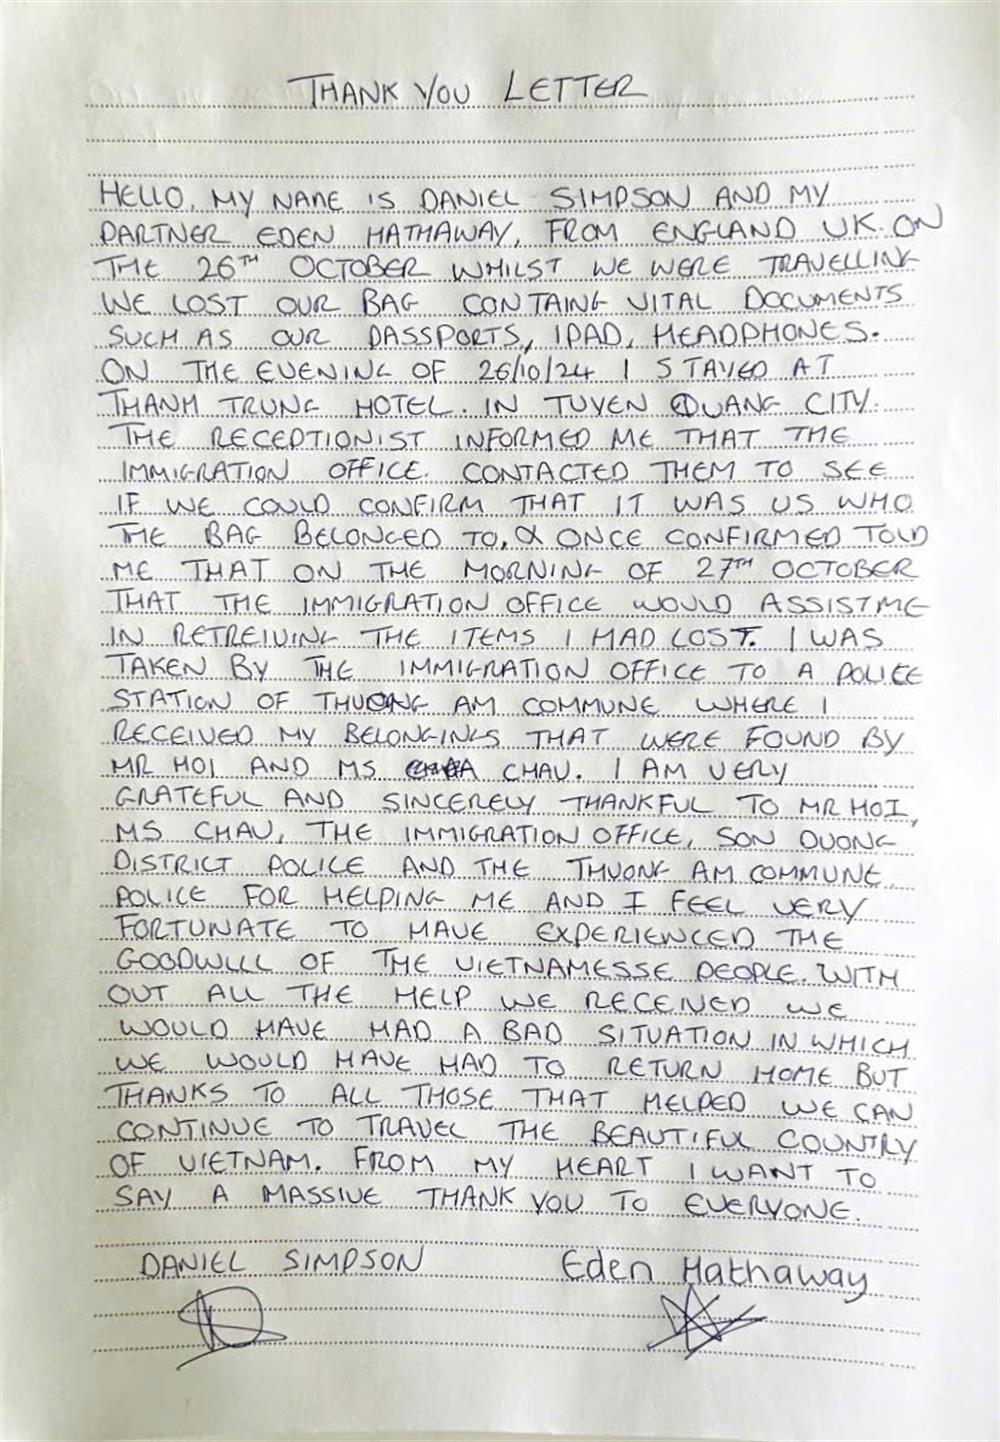 THANK YOU LETTER
HELLO, MY NAME IS DANIEL SIMPSON AND MY
PARTNER EDEN HATHAWAY, FROM ENGLAND UK. ON
THE 26TH OCTOBER WHILST WE WERE TRAVELLING
WE LOST OUR BAG CONTAING VITAL DOCUMENTS
SUCH AS OUR PASSPORTS, IPAD, HEADPHONES.
ON THE EVENING OF 26/10/24 I STAYED AT
THANH TRUNG HOTEL. IN TUYEN QUANG CITY.
THE RECEPTIONIST INFORMED ME THAT THE
IMMIGRATION OFFICE. CONTACTED THEM TO SEE
IF WE COULD CONFIRM THAT IT WAS US WHO
THE BAG BELONGED TO, & ONCE CONFIRMED TOLD
ME THAT ON THE MORNING OF 27TH OCTOBER
THAT THE IMMIGRATION OFFICE WOULD ASSIST ME
IN RETREIVING THE ITEMS I HAD LOST. I WAS
TAKEN BY THE IMMIGRATION OFFICE TO A POLICE
STATION OF THUONG AM COMMUNE WHERE I
RECEIVED MY BELONGINGS THAT WERE FOUND BY
MR HOI AND MS CHAU. I AM VERY
GRATEFUL AND SINCERELY THANKFUL TO MR HOI,
MS CHAU, THE IMMIGRATION OFFICE, SON DUONG
DISTRICT POLICE AND THE THUONG AM COMMUNE
POLICE FOR HELPING ME AND I FEEL VERY
FORTUNATE TO HAVE EXPERIENCED THE
GOODWLLL OF THE VIETNAMESSE PEOPLE. WITH
OUT ALL THE HELP WE RECEIVED WE
WOULD HAVE HAD A BAD SITUATION IN WHICH
WE WOULD HAVE HAD TO RETURN HOME BUT
THANKS TO ALL THOSE THAT HELPED WE CAN
CONTINUE TO TRAVEL THE BEAUTIFUL COUNTRY
OF VIETNAM. FROM MY HEART I WANT TO
SAY A MASSIVE THANK YOU TO EVERYONE.
DANIEL SIMPSON Eden Hathaway